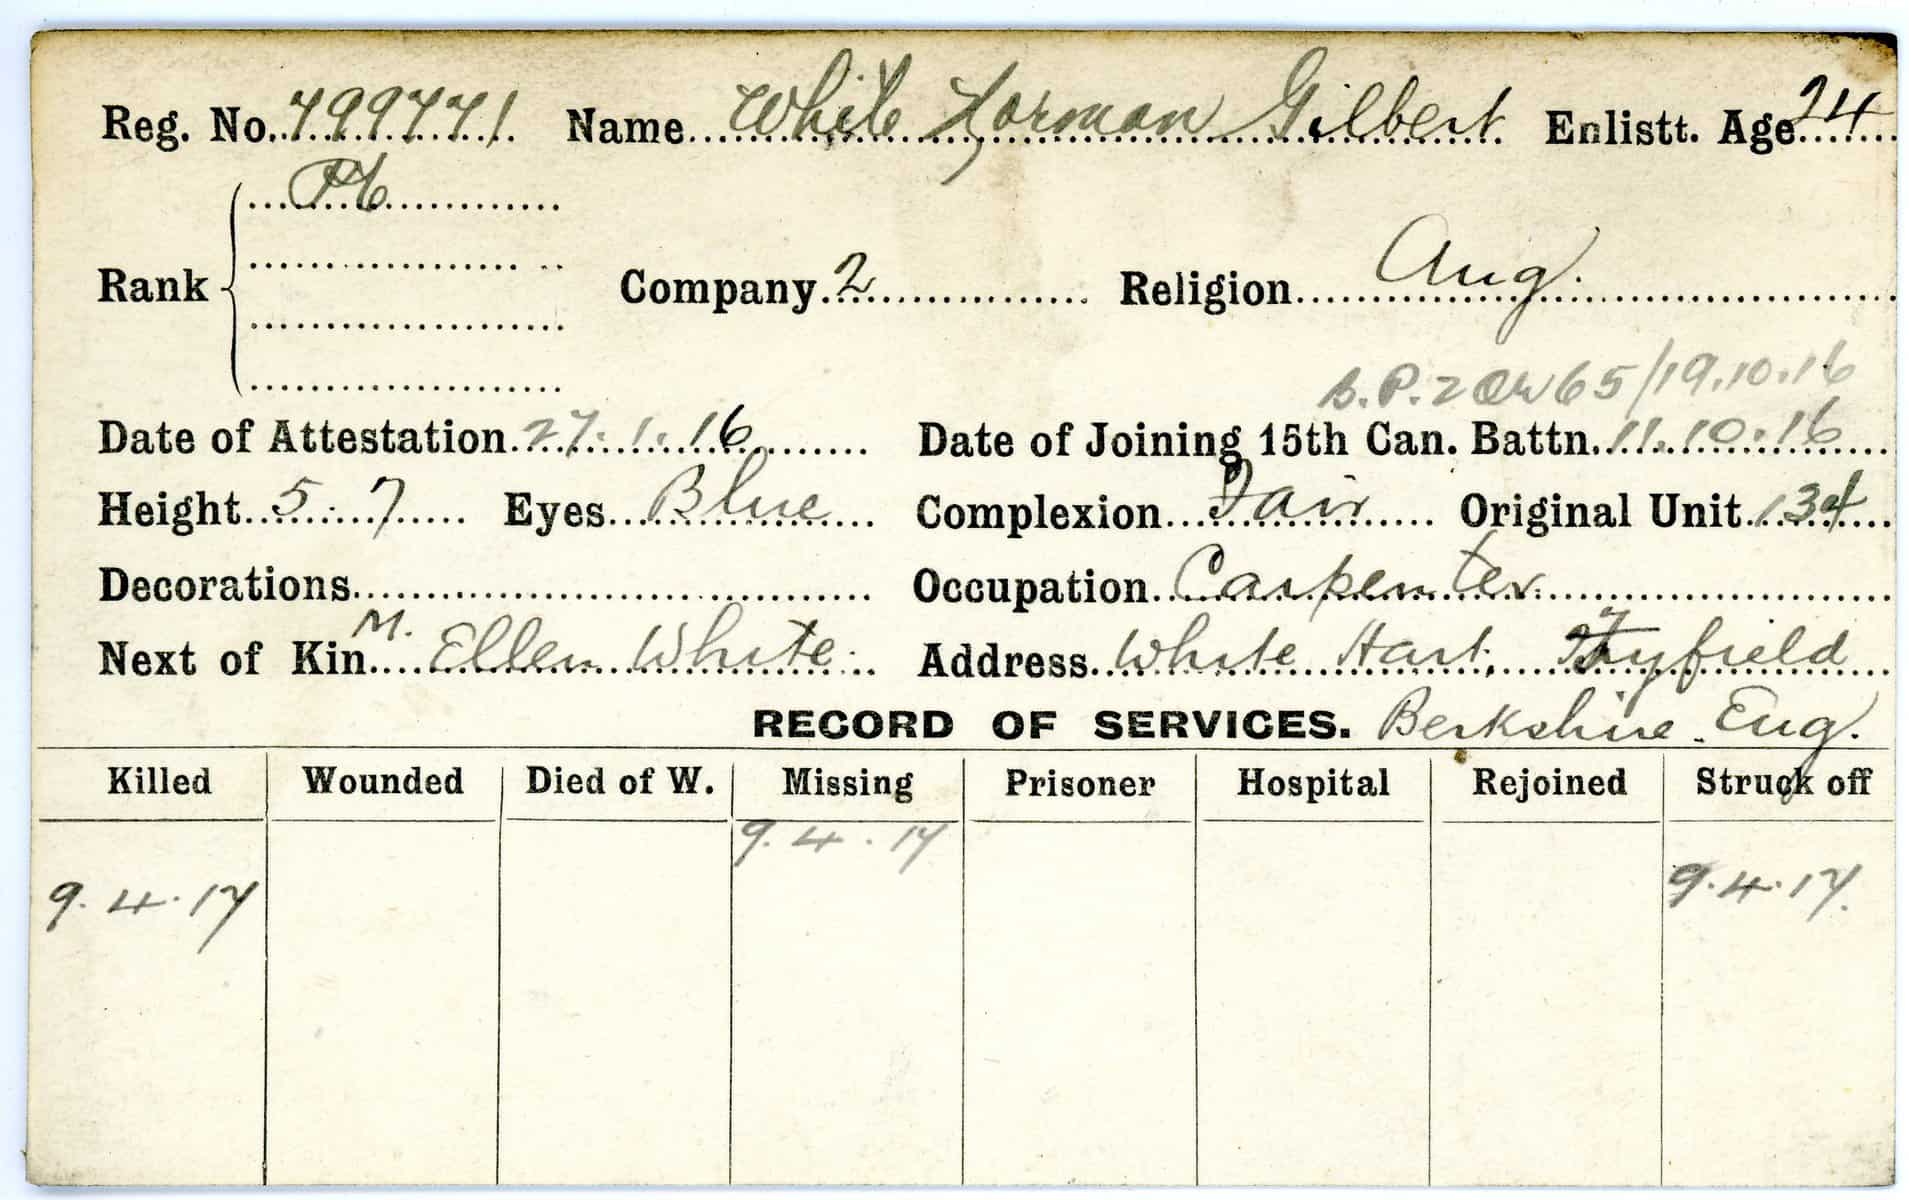 Reg. No. 799771 Name White Norman Gilbert Enlistt. Age 24
Pte
Rank Company 2 Religion Ang.
B.P. 2 Or 65/19.10.16
Date of Attestation 27.1.16 Date of Joining 15th Can. Battn. 11.10.16
Height 5.7 Eyes Blue Complexion Fair Original Unit 134
Decorations Occupation Carpenter
Next of Kin M. Ellen White Address White Hart, Fyfield
RECORD OF SERVICES. Berkshire. Eng.
Killed Wounded Died of W. Missing Prisoner Hospital Rejoined Struck off
9.4.17
9.4.17 9.4.17.